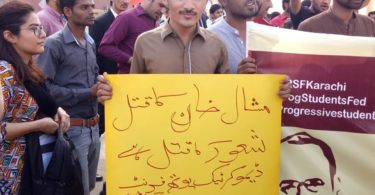 مشال خان کا قتل
شعور کا قتل ہے
ڈیموکریٹک یوتھ فرنٹ
SFKarachi
ogStudentsFed
rogressivestudent